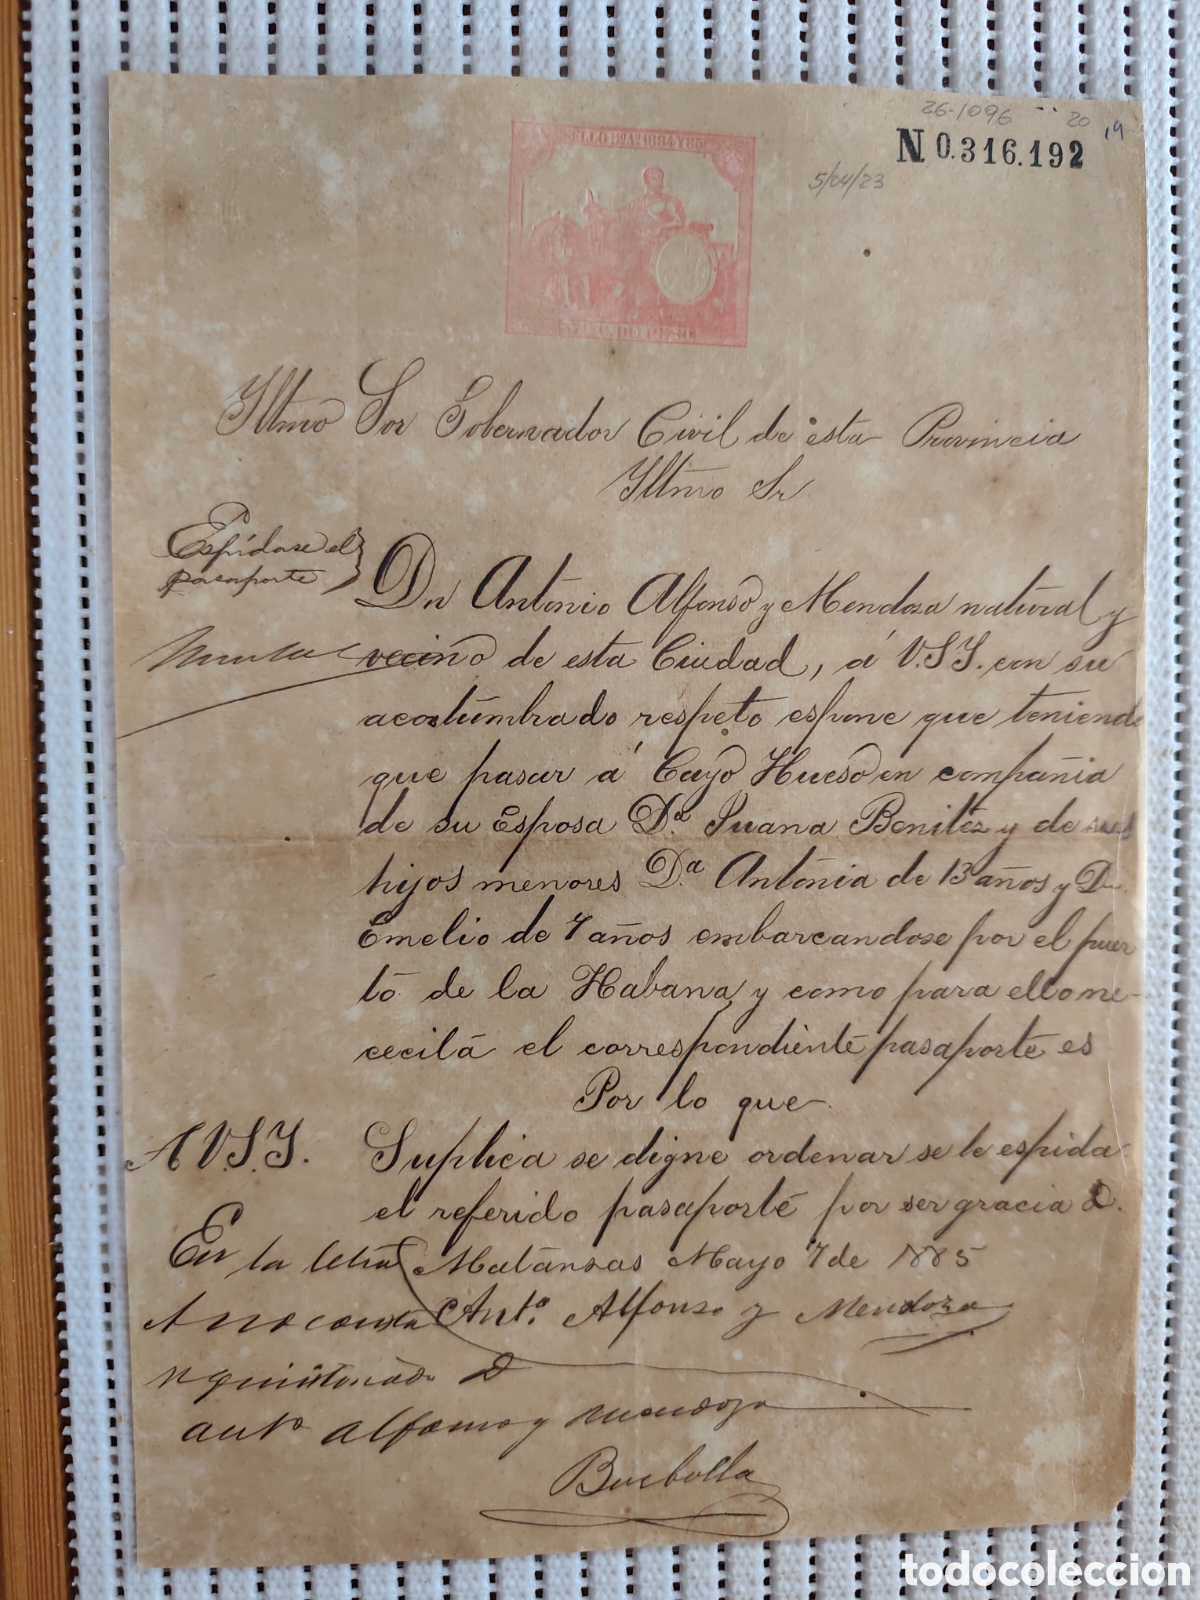 26-1096 20 19
N 0.316.192
5/04/23
SELLO 12º 1884 Y 85
Yltmo Sor Gobernador Civil de esta Provincia
Yltmo Sr
Espídase el
pasaporte
Dn Antonio Alfonso y Mendoza natural y
vecino de esta Ciudad, á V.S.Y. con su
acostumbrado respeto espone que teniendo
que pasar á Cayo Hueso en compañia
de su Esposa Dª. Juana Benitez y de sus
hijos menores D.ª Antonia de 13 años y Dn
Emelio de 7 años embarcandose por el puer
to de la Habana y como para ello ne-
cecita el correspondiente pasaporte es
Por lo que
A V.S.Y. Suplica se digne ordenar se le espida
el referido pasaporte por ser gracia &.
Matansas Mayo 7 de 1885
Antº. Alfonso y Mendoza
En la letra
A no consta
Antº Alfonso y Mendoza
Burbolla
todocoleccion